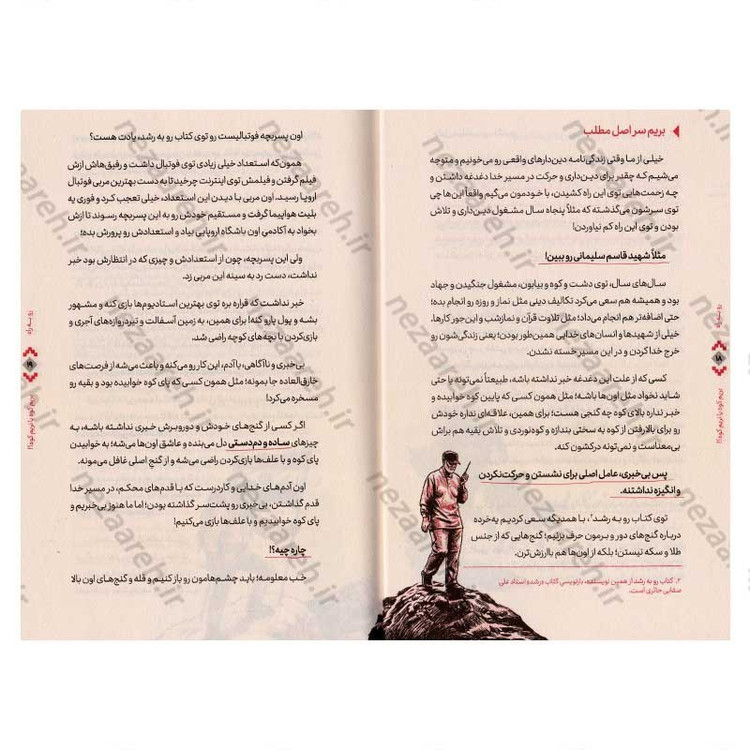 بریم سر اصل مطلب
خیلی از ما وقتی زندگی‌نامه دین‌دارهای واقعی رو می‌خونیم و متوجه
می‌شیم که چقدر برای دین‌داری و حرکت در مسیر خدا دغدغه داشتن و
چه زحمت‌هایی توی این راه کشیدن، با خودمون می‌گیم واقعاً این‌ها چی
توی سرشون می‌گذشته که مثلاً پنجاه سال مشغول دین‌داری و تلاش
بودن و توی این راه کم نیاوردن!
مثلاً شهید قاسم سلیمانی رو ببین!
سال‌های سال، توی دشت و کوه و بیابون، مشغول جنگیدن و جهاد
بود و همیشه هم سعی می‌کرد تکالیف دینی مثل نماز و روزه رو انجام بده؛
حتی اضافه‌تر هم انجام می‌داد؛ مثل تلاوت قرآن و نمازشب و این‌جور کارها.
خیلی از شهیدها و انسان‌های خدایی همین‌طور بودن؛ یعنی زندگی‌شون رو
خرج خدا کردن و در این مسیر خسته نشدن.
کسی که از علت این دغدغه خبر نداشته باشه، طبیعتاً نمی‌تونه یا حتی
شاید نخواد مثل اون‌ها باشه؛ مثل همون کسی که پایین کوه خوابیده و
خبر نداره بالای کوه چه گنجی هست؛ برای همین، علاقه‌ای نداره خودش
رو برای بالارفتن از کوه به سختی بندازه و کوه‌نوردی و تلاش بقیه هم براش
بی‌معناست و نمی‌تونه درکشون کنه.
پس بی‌خبری، عامل اصلی برای نشستن و حرکت‌نکردن
و انگیزه نداشتنه.
توی کتاب رو به رشد۲، با همدیگه سعی کردیم یه‌خرده
درباره گنج‌های دور و برمون حرف بزنیم؛ گنج‌هایی که از جنس
طلا و سکه نیستن؛ بلکه از اون‌ها هم باارزش‌ترن.
۲. کتاب رو به رشد از همین نویسنده، بازنویسی کتاب «رشد» استاد علی
صفایی حائری است.
رو به راه
۱۸
بریم کوه یا نریم کوه؟!
اون پسربچه فوتبالیست رو توی کتاب رو به رشد، یادت هست؟
همون‌که استعداد خیلی زیادی توی فوتبال داشت و رفیق‌هاش ازش
فیلم گرفتن و فیلمش توی اینترنت چرخید تا به دست بهترین مربی فوتبال
اروپا رسید. اون مربی با دیدن این استعداد، خیلی تعجب کرد و فوری یه
بلیت هواپیما گرفت و مستقیم خودش رو به این پسربچه رسوند تا ازش
بخواد به آکادمیِ اون باشگاه اروپایی بیاد و استعدادش رو پرورش بده؛
ولی این پسربچه، چون از استعدادش و چیزی که در انتظارش بود خبر
نداشت، دست رد به سینه این مربی زد.
خبر نداشت که قراره بره توی بهترین استادیوم‌ها بازی کنه و مشهور
بشه و پول پارو کنه! برای همین، به زمین آسفالت و تیردروازه‌های آجری و
بازی‌کردن با بچه‌های کوچه راضی شد.
بی‌خبری و ناآگاهی، با آدم، این کار رو می‌کنه و باعث می‌شه از فرصت‌های
خارق‌العاده جا بمونه؛ مثل همون کسی که پای کوه خوابیده بود و بقیه رو
مسخره می‌کرد!
اگر کسی از گنج‌های خودش و دوروبرش خبری نداشته باشه، به
چیزهای ساده و دم‌دستی دل می‌بنده و عاشق اون‌ها می‌شه؛ به خوابیدن
پای کوه و با علف‌ها بازی‌کردن راضی می‌شه و از گنج اصلی غافل می‌مونه.
اون آدم‌های خدایی و کاردرست که با قدم‌های محکم، در مسیر خدا
قدم گذاشتن، بی‌خبری رو پشت‌سر گذاشته بودن؛ اما ما هنوز بی‌خبریم و
پای کوه خوابیدیم و با علف‌ها بازی می‌کنیم!
چاره چیه؟!
خب معلومه؛ باید چشم‌هامون رو باز کنیم و قله و گنج‌های اون بالا
رو به راه
۱۹
بریم کوه یا نریم کوه؟!
nezaareh.ir